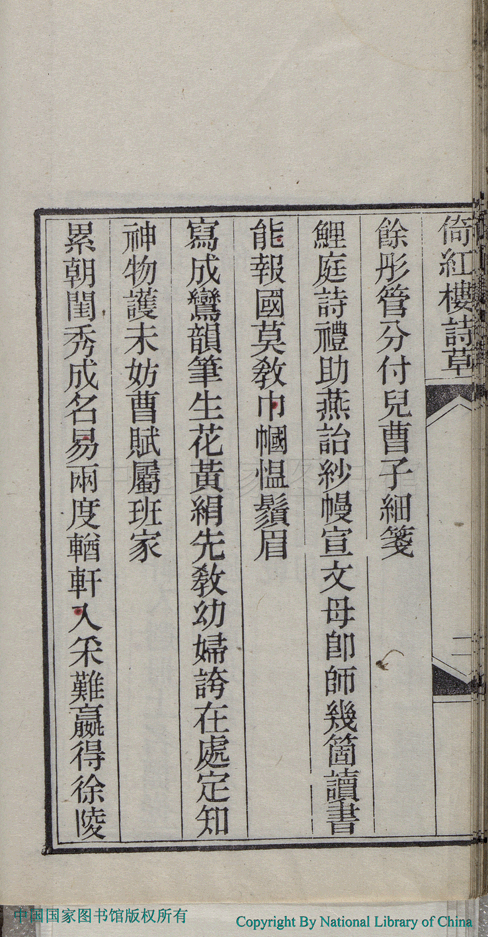 倚紅樓詩草
二
餘彤管分付兒曹子細箋
鯉庭詩禮助燕詒紗幔宣文母卽師幾箇讀書
能報國莫敎巾幗愠鬚眉
寫成鸞韻筆生花黃絹先敎幼婦誇在處定知
神物護未妨曹賦屬班家
累朝閨秀成名易兩度輶軒入采難贏得徐陵
中国国家图书馆版权所有
Copyright By National Library of China